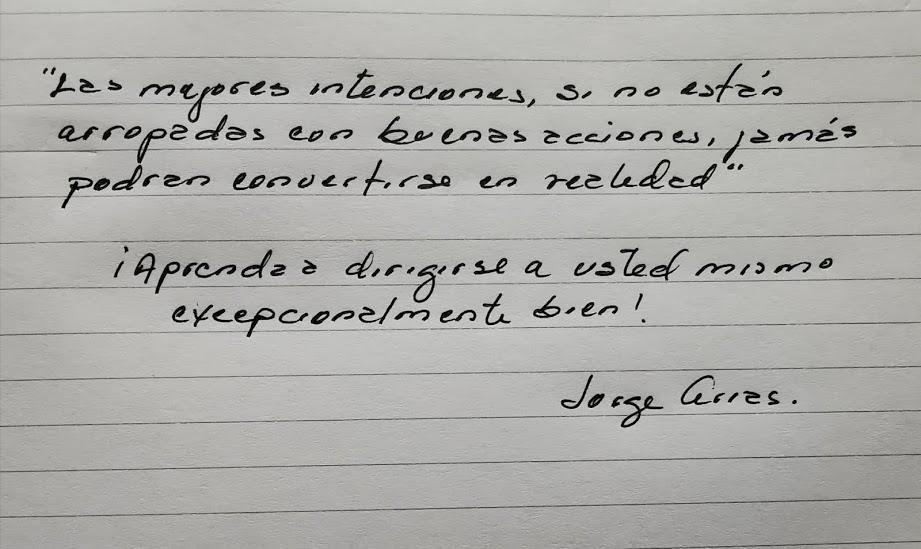 "Las mayores intenciones, si no están
arropadas con buenas acciones, jamás
podran convertirse en realidad"
¡Aprenda a dirigirse a usted mismo
excepcionalmente bien!
Jorge